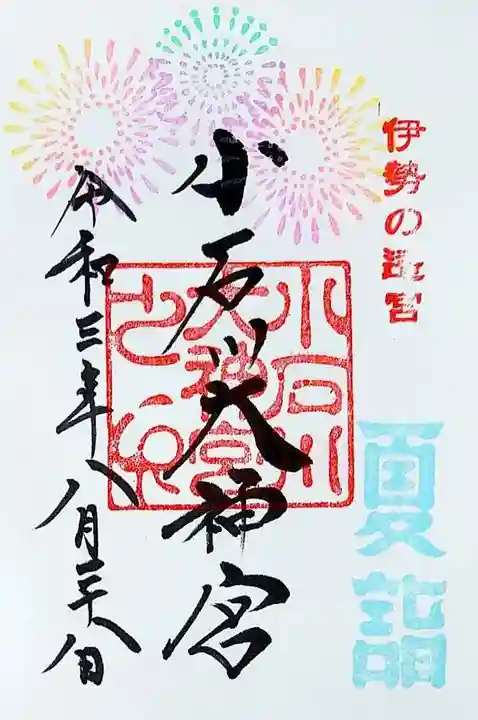 伊勢の遥宮
夏詣
小石川大神宮
小石川
大神宮
之印
令和三年八月二十八日